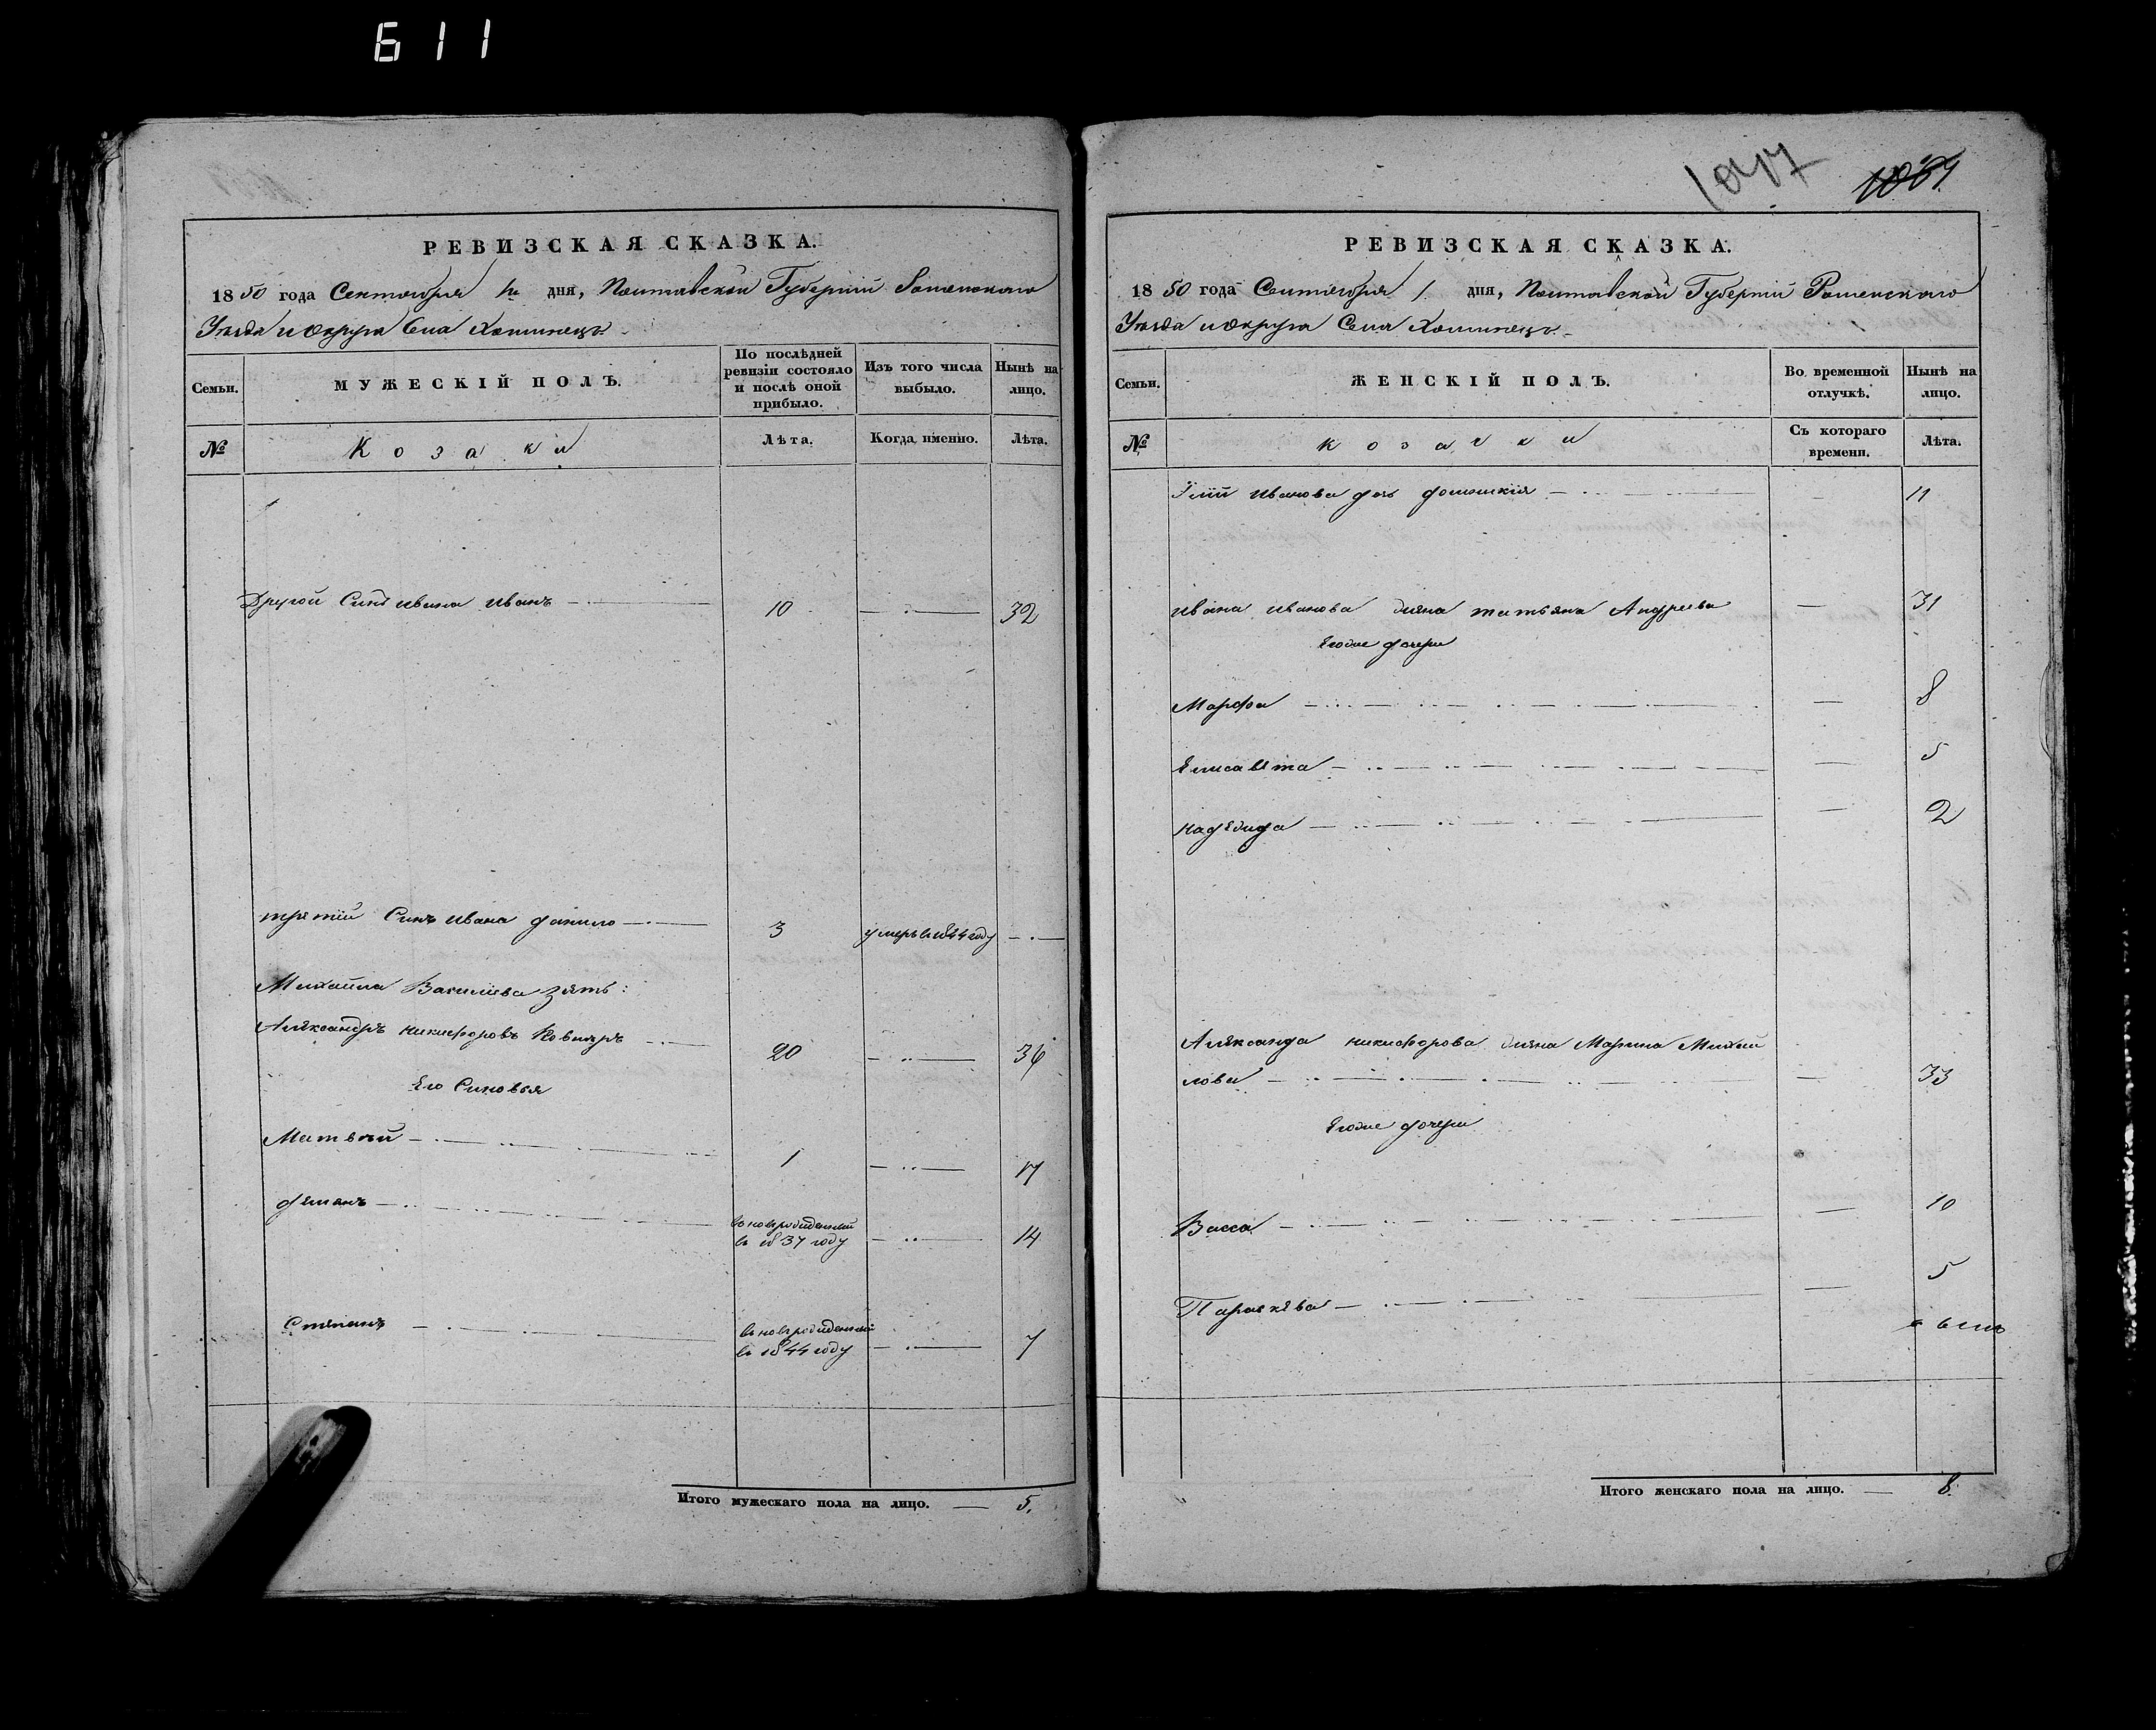 611
РЕВИЗСКАЯ СКАЗКА.
1850 года Сентября 1го дня, Полтавской Губерніи Роменского
Уезда и округа Села Хоминецъ.
Семьи.
МУЖЕСКІЙ ПОЛЪ.
По послѣдней ревизіи состояло и послѣ оной прибыло.
Изъ того числа выбыло.
Нынѣ на лицо.
№
Козаки
Лѣта.
Когда именно.
Лѣта.
Другой Синъ Ивана Иванъ 10 32
третій Синъ Ивана Данило 3 умеръ в 1844 году
Михайла Василіева зять:
Александръ Никифоровъ 20 36
Его Синовья
Матвѣй 1 17
Демянъ
вновьрожденный
въ 1837 году 14
Степанъ
вновьрожденный
въ 1844 году 7
Итого мужескаго пола на лицо. 5.
1047
РЕВИЗСКАЯ СКАЗКА.
1850 года Сентября 1 дня, Полтавской Губерніи Роменского
Уезда и округа Села Хоминецъ.
Семьи.
ЖЕНСКІЙ ПОЛЪ.
Во временной отлучкѣ.
Нынѣ на лицо.
№
козачки
Съ котораго времени.
Лѣта.
Иванова дочь 11
Ивана Иванова жена татьяна Андреева 31
Егоже дочери
Марфа 8
Елисавета 5
надежда 2
Александра никифорова жена Марина Михай
лова 33
Егоже дочери
Васса 10
Параскева 5
Итого женскаго пола на лицо. 8.